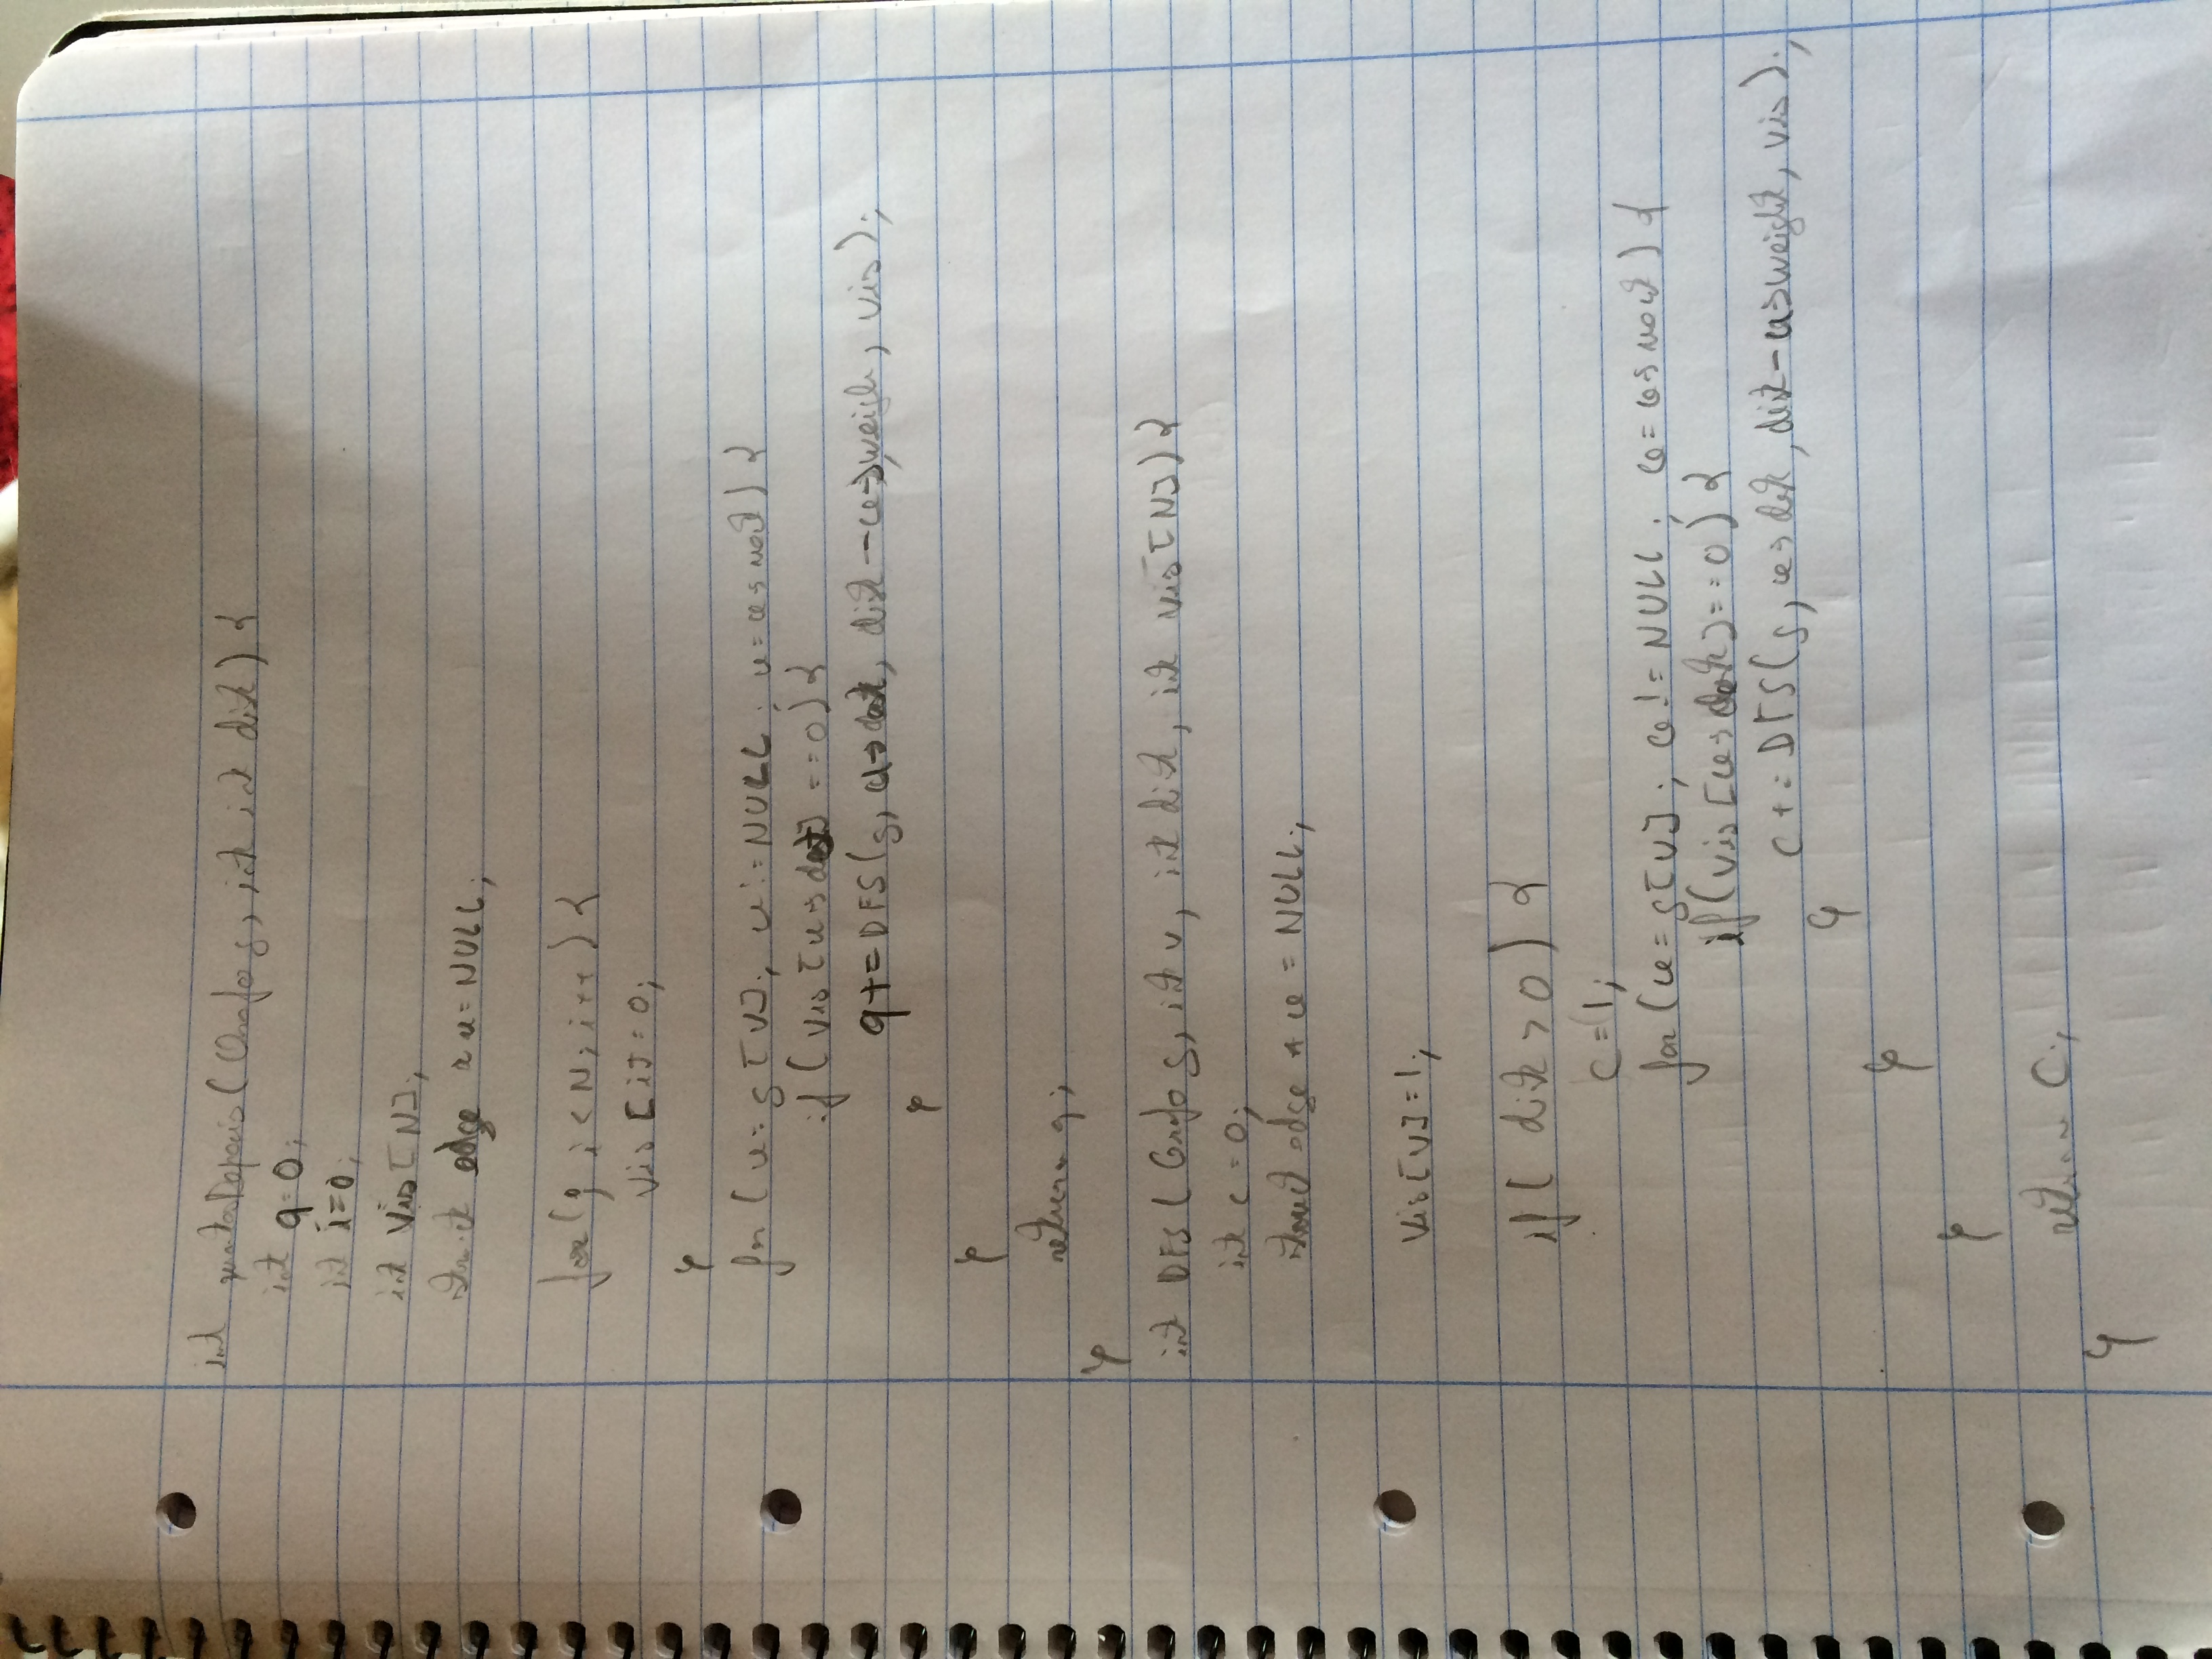 int (Grafo g, int int dist) {
int q=0;
int i=0;
int vis[N];
struct edge *u=NULL;
for(; i<N; i++) {
vis[i]=0;
}
for(u=g[v]; u!=NULL; u=u->next) {
if(vis[u->dest]==0) {
q+=DFS(g, u->dest, dist-u->weigh, vis);
}
}
return q;
}
int DFS(Grafo g, int v, int dist, int vis[N]) {
int c=0;
struct edge *u = NULL;
vis[v]=1;
if( dist > 0) {
c=1;
for(u=g[v]; u!=NULL; u=u->next) {
if(vis[u->dest]==0) {
c+=DFS(g, u->dest, dist-u->weight, vis);
}
}
}
return c;
}